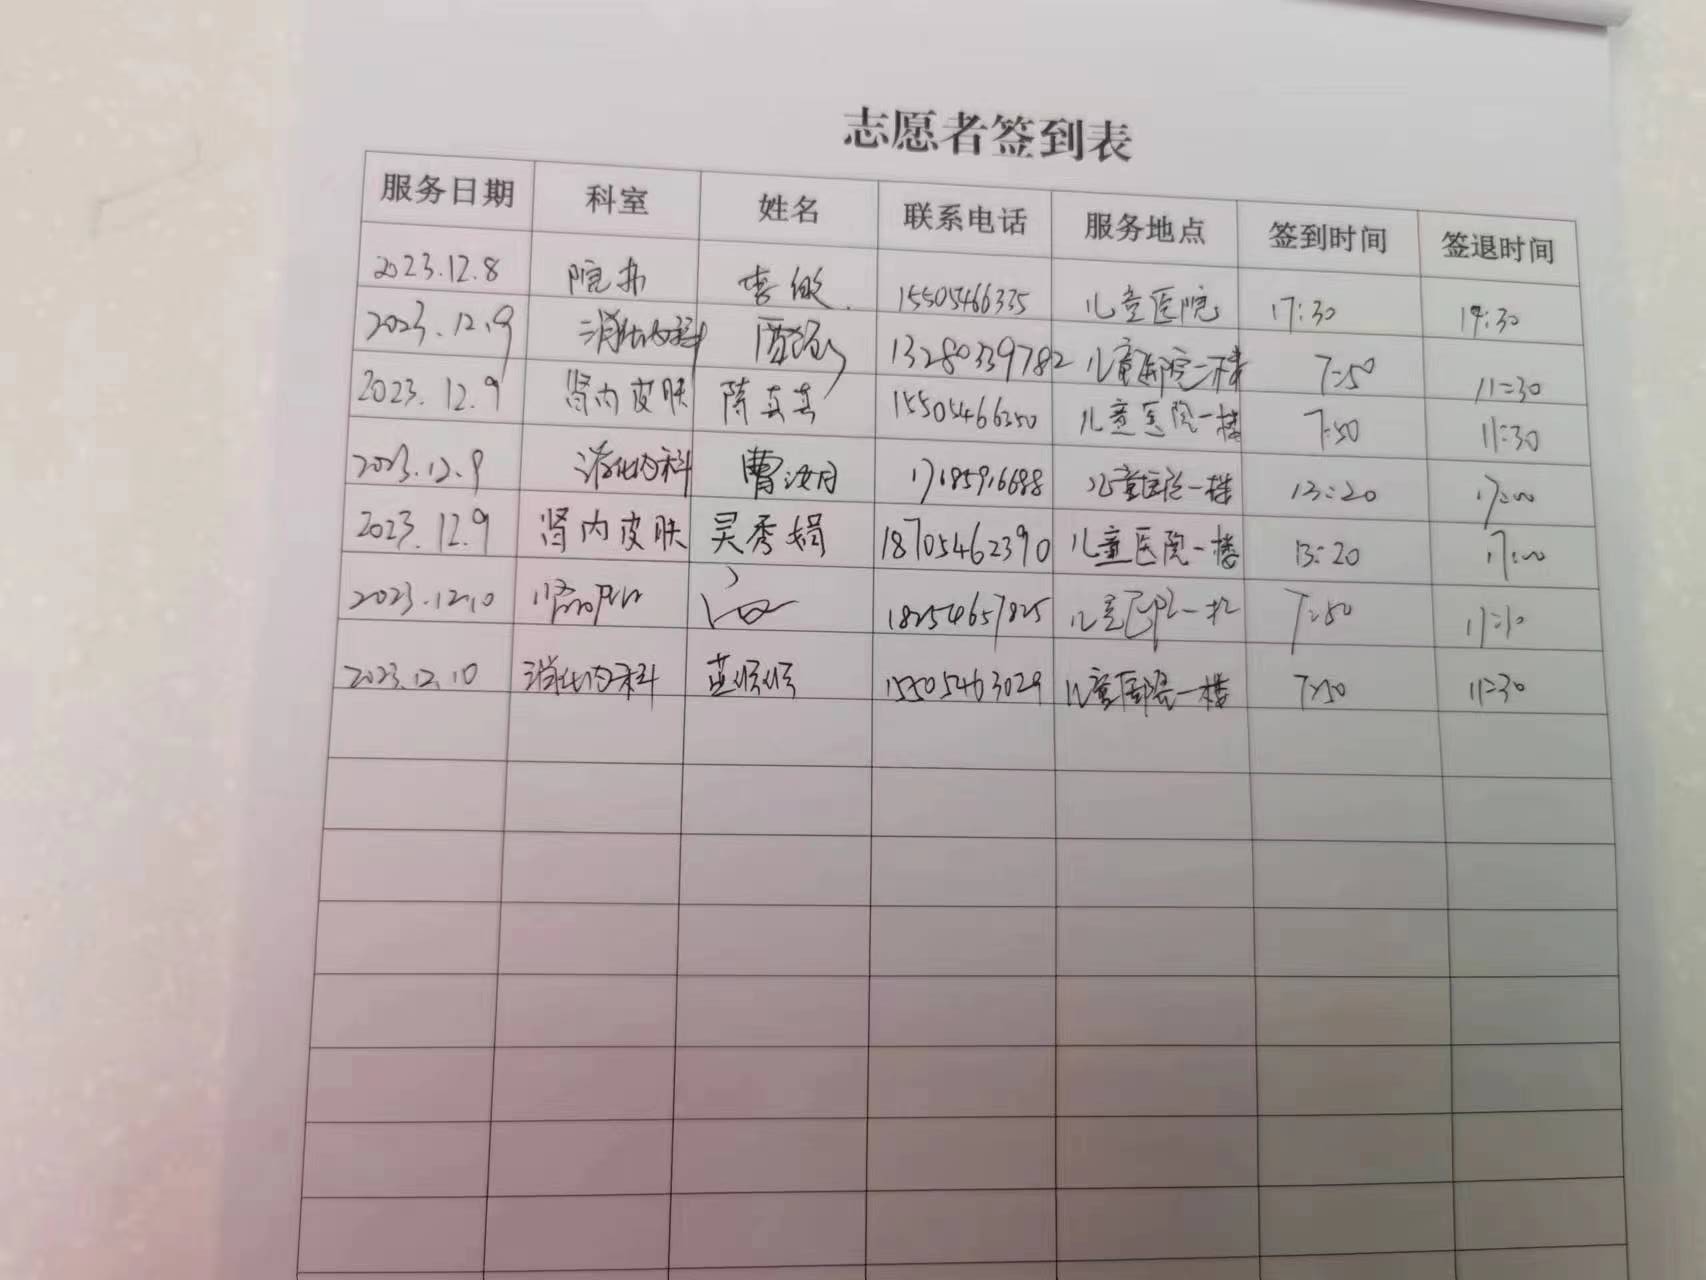 志愿者签到表
服务日期 科室 姓名 联系电话 服务地点 签到时间 签退时间
2023.12.8 院办 李敏 15505466335 儿童医院 17:30 19:30
2023.12.9 消化内科 13280339782 儿童医院一楼 7:50 11:30
2023.12.9 肾内皮肤 陈真真 15505466350 儿童医院一楼 7:50 11:30
2023.12.9 消化内科 曹汝月 儿童医院一楼 13:20 17:00
2023.12.9 肾内皮肤 吴秀娟 18705462390 儿童医院一楼 13:20 17:00
2023.12.10 18254657825 儿童医院一楼 7:50
2023.12.10 消化内科 15505463029 儿童医院一楼 7:50 11:30